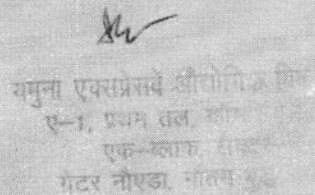 यमुना एक्सप्रेसवे औद्योगिक
ए-1, प्रथम तल,
एफ-ब्लाक,
ग्रेटर नौएडा, गौतम बुद्ध